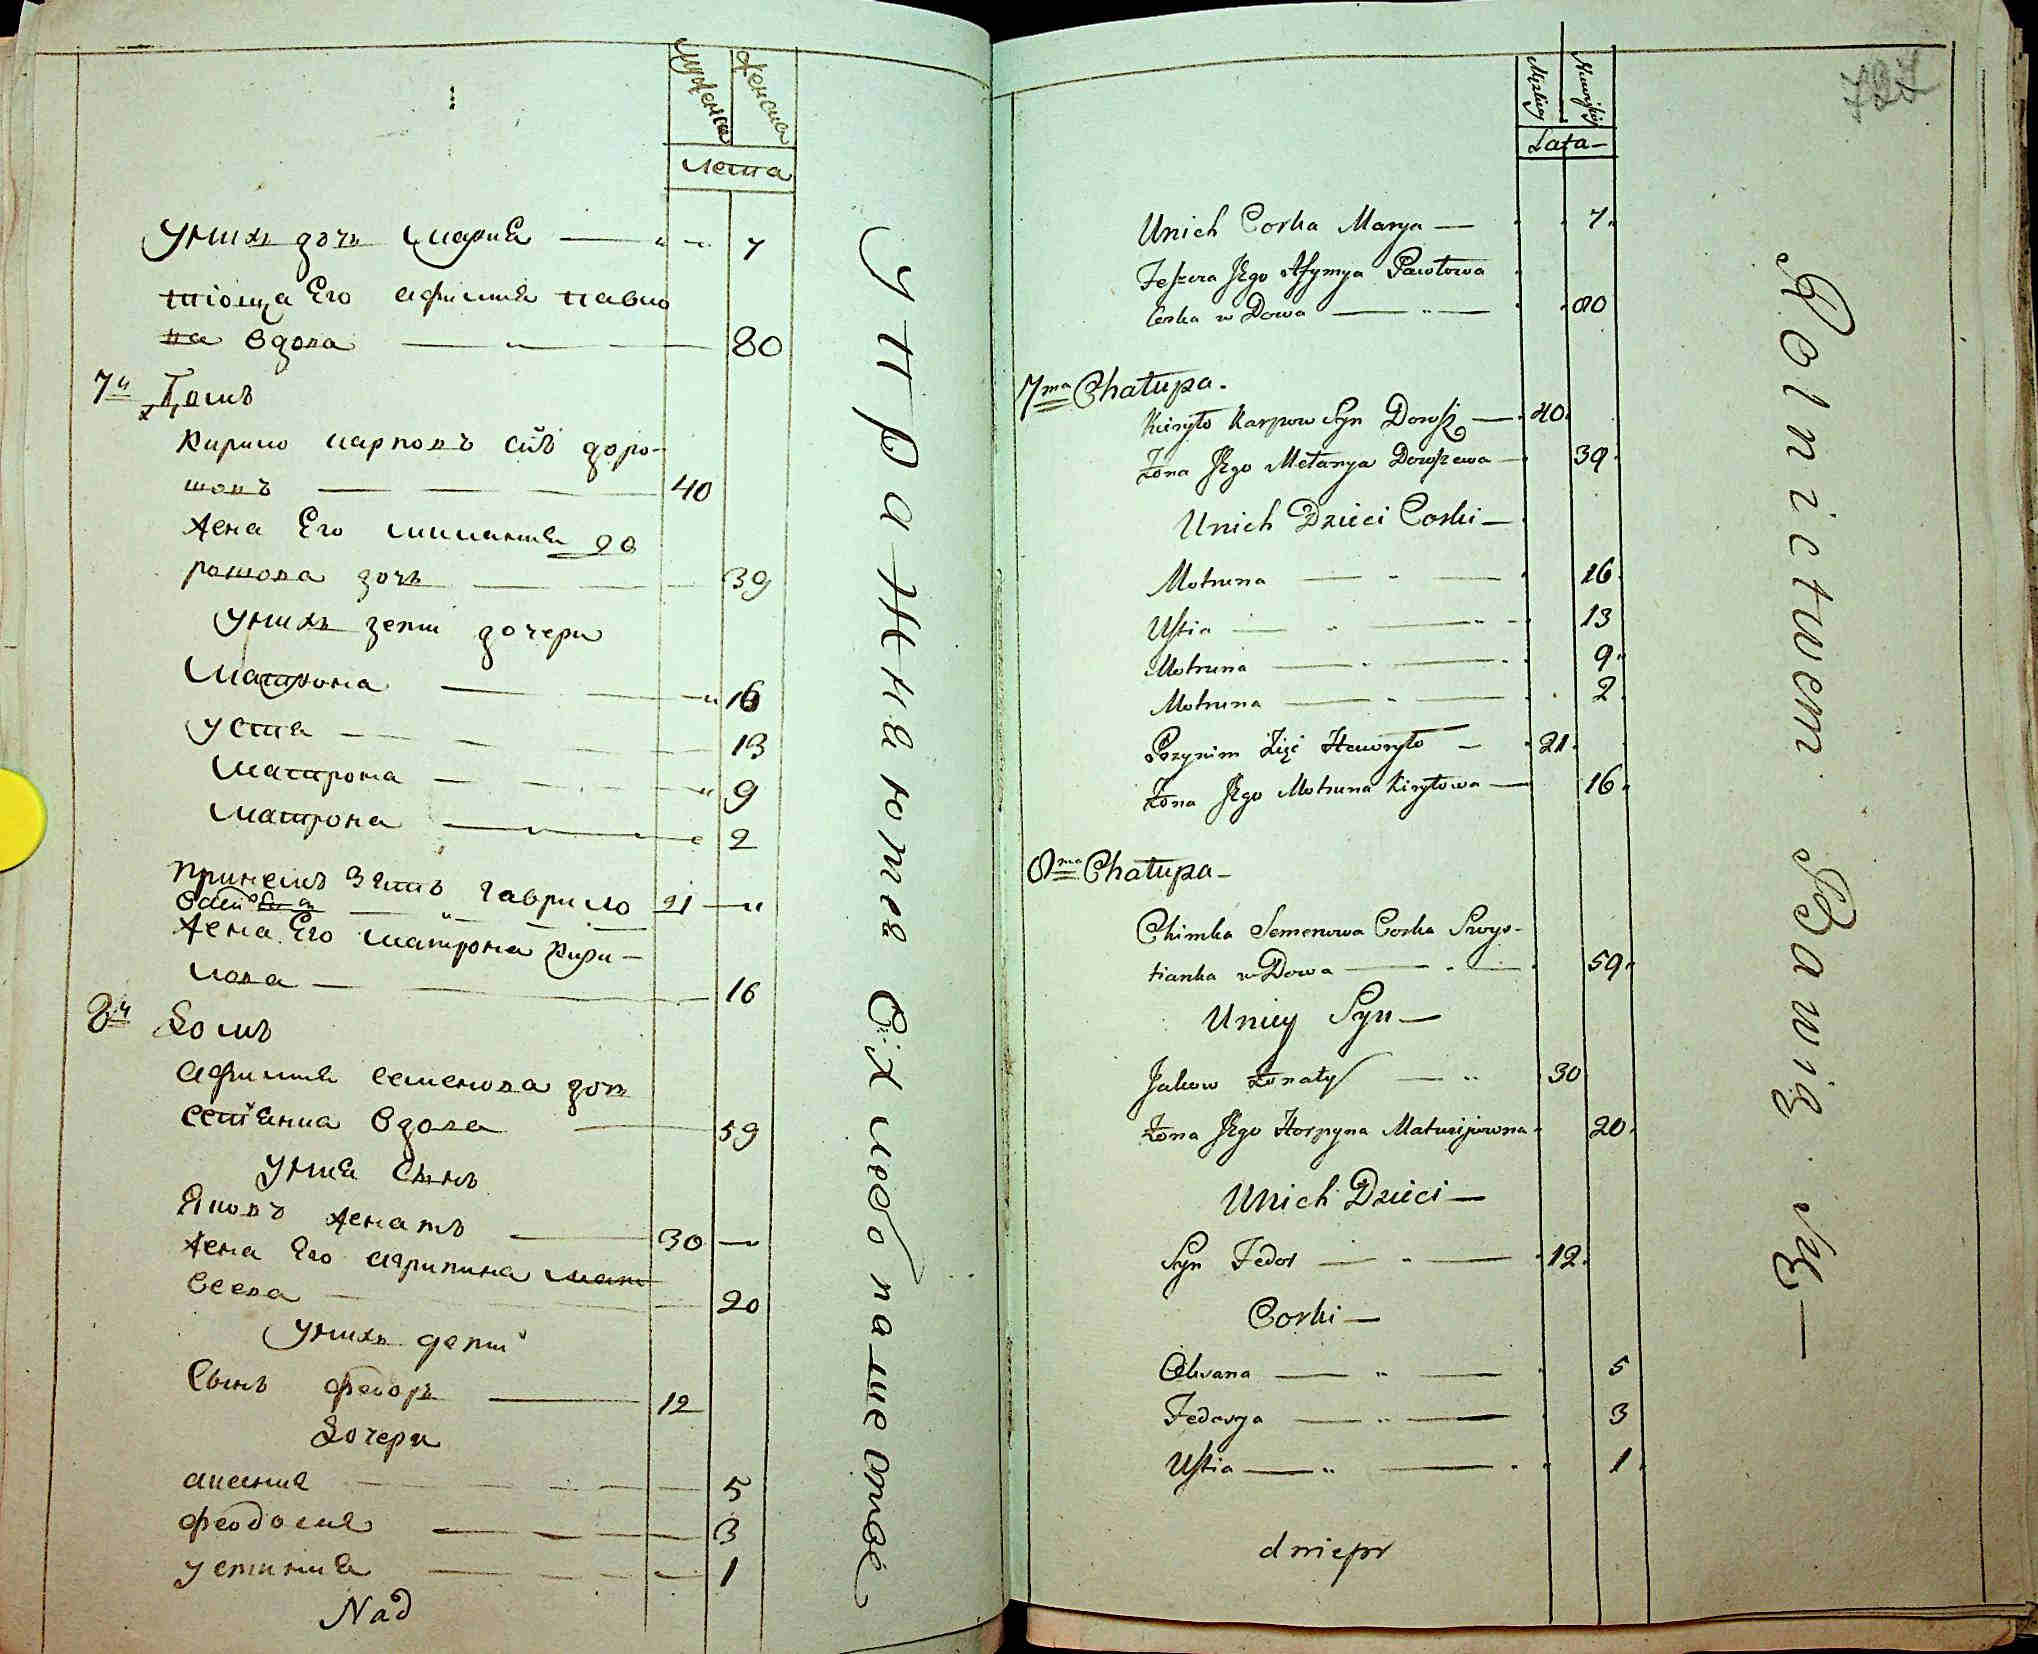 мужеска
женска
лета
У них дочь Мария — 7
тіоща Его афимия павло
на вдова — 80
7й Домъ
Кирило Карповъ сн҃ъ доро-
шовъ — 40
жена Его милания до
рошова дочь — 39
У них дети дочери
Матрона — 16
Устя — 13
Матрона — 9
Матрона — 2
принемъ зять гаврило 21
жена Его матрона кири-
лова — 16
8й Домъ
афимия семенова дочь
вдова — 59
У ния сынъ
Яковъ женатъ — 30 —
жена Его агрипина мат
веева — 20
У них дети
сынъ федоръ — 12
Дочери
5
феодосия — 3
устиния — 1
Nad
Упражнаются С:Х лебопашеством
727
Męskiey
Lata
Unich Corka Marya — 7
Teszcza Jego Afymya Pawłowa
Corka w Dowa — 80
7ma Chałupa.
Kiryło Karpow Syn Dorosz — 40
Żona Jego Mełanya Doroszewa — 39
Unich Dzieci Corki —
Motruna — 16
Ustia — 13
Motruna — 9
Motruna — 2
Przynim Zięć Hawryło — 21
Żona Jego Motruna Kiryłowa — 16
8ma Chałupa —
Chimka Semenowa Corka Swys-
tianka w Dowa — 59
Uniey Syn —
Jakow Żonaty — 30
Żona Jego Horpyna Matwijowna 20
Unich Dzieci —
Syn Fedor — 12
Corki —
Oksana — 5
Fedosya — 3
Ustia — 1
dniepr
Rolnictwem Bawią Się —